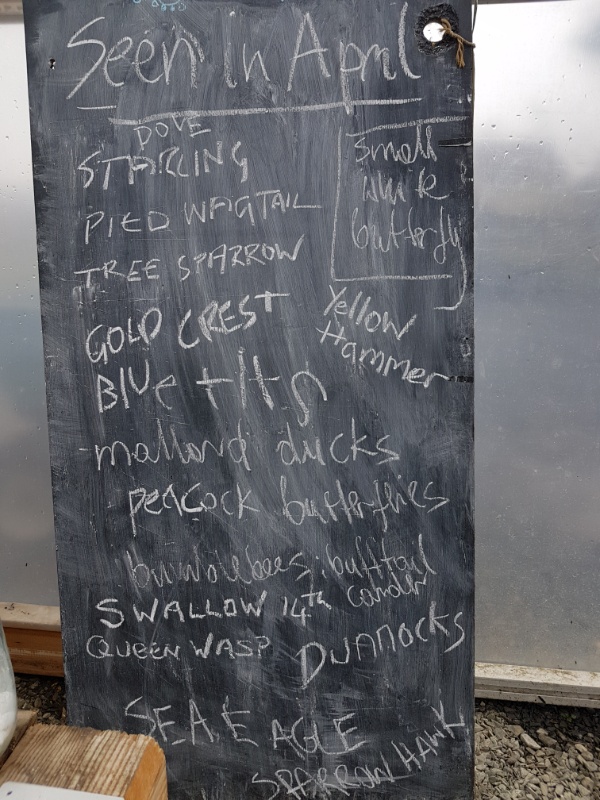 Seen in April
DOVE
STARLING
small
white
butterfly
PIED WAGTAIL
TREE SPARROW
GOLD CREST
Yellow
Hammer
Blue tits
mallard ducks
PEACOCK butterflies
bumblebees: bufftail
SWALLOW 14th
QUEEN WASP
DUNNOCKS
SEA EAGLE
SPARROW HAWK